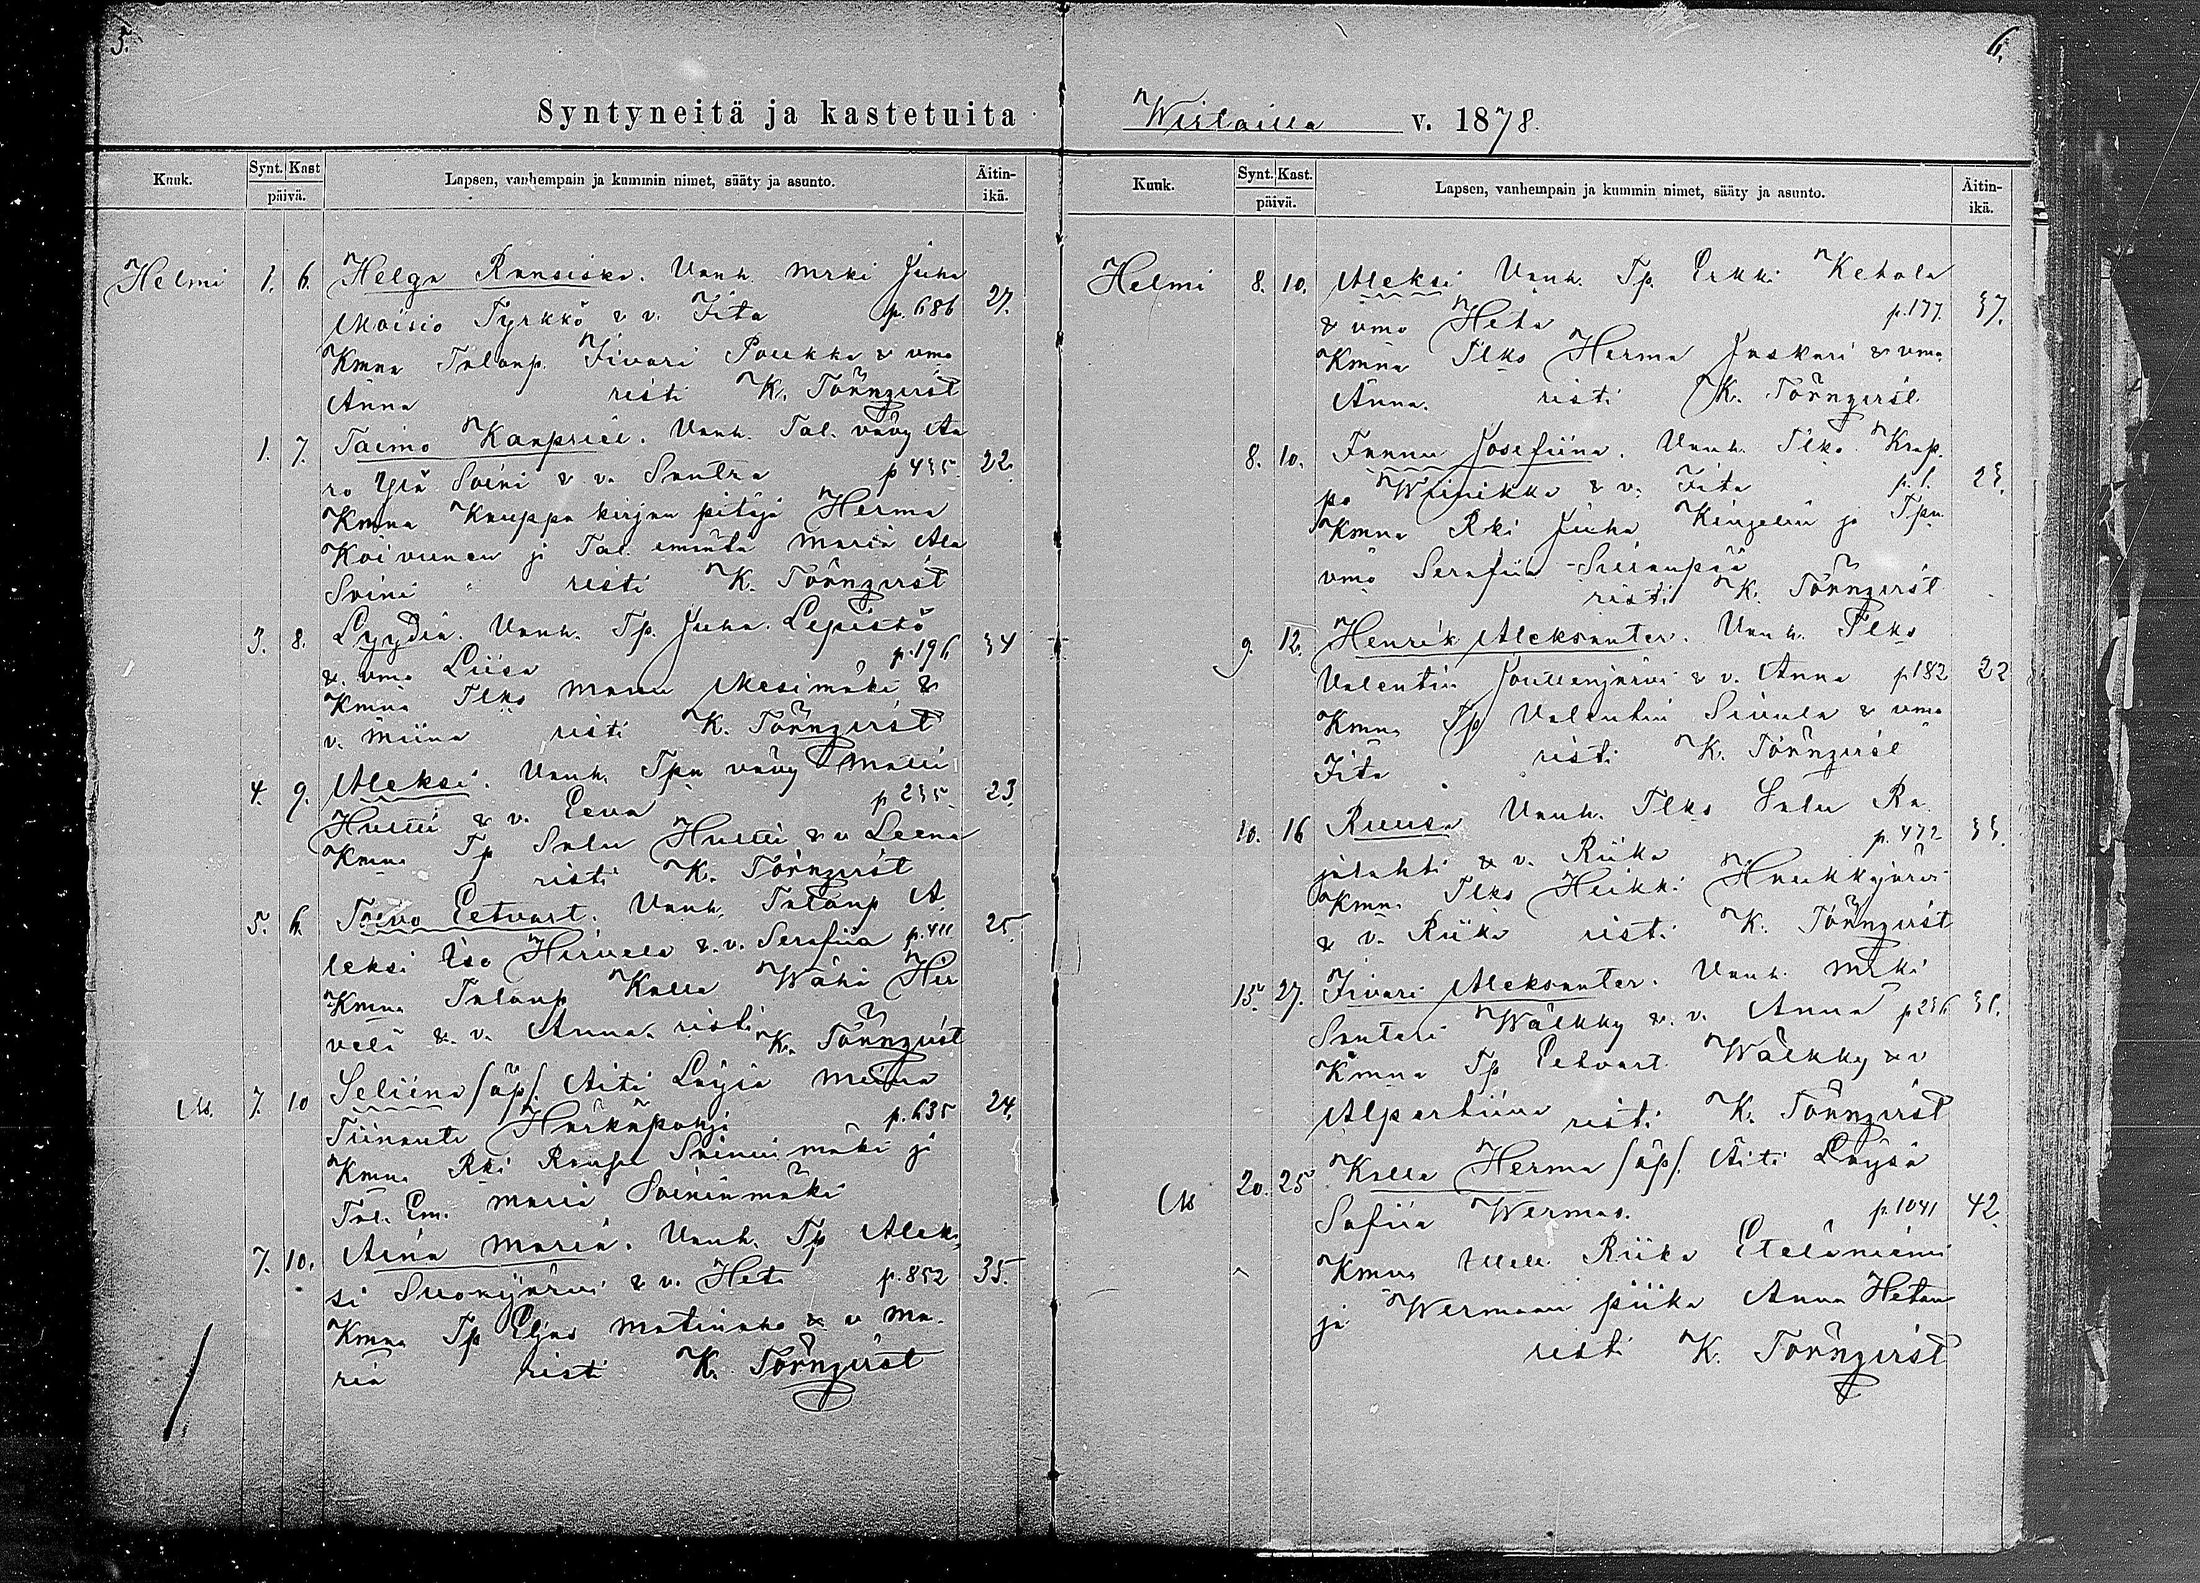 5.
6.
Syntyneitä ja kastetuita
Wirtailla v. 1878.
Kuuk. Synt. Kast päivä. Lapsen, vanhempain ja kummin nimet, sääty ja asunto. Äitin-ikä.
Helmi 1. 6. Helga Ransiska. Vanh. Mrki Juha
Moisio Tyrkkö & v. Fita p. 686 27.
Kmna Talonp. Iivari Poukka & vmo
Anna risti K. Törnqvist
1. 7. Taimo Kaapriel. Vanh. Tal. vävy Aa
ro Yiä Soini & v. Santra p 435 22.
Kmna Kauppa kirjan pitäjä Herma
Koivunen ja Tal. emäntä Maria Ala
Soini risti K. Törnqvist
3. 8. Lyydia. Vanh. Tp. Juha Lepistö
& vmo Liisa p. 196 34
Kmna Tlks Manu Mesimäki &
v. Miina risti K. Törnqvist
4. 9. Aleksi. Vanh. Tpn vävy Matti
Hutti & v. Eeva p 235. 23.
Kmna Tp Salu Hutti & v Leena
risti K. Törnqvist
5. 6. Toivo Eetvart. Vanh. Talonp A
leksi Iso Hirvelä & v. Serafiia p. 411 25.
Kmna Talonp Kalle Wähä Hir
velä & v. Anna risti K. Törnqvist
Ms. 7. 10 Seliina /äp/. Äiti Löysä Miina
Tiinantr Härkäpohja p. 635 24.
Kmna Rki Raaha Soininmäki ja
Tal. Em. Maria Soininmäki
7. 10. Aina Maria. Vanh. Tp Alek
si Suokijärvi & v. Heta p. 852 35.
Kmna Tp Eljas Matinaho & v Ma-
ria risti K. Törnqvist
Kuuk. Synt. Kast. päivä. Lapsen, vanhempain ja kummin nimet, sääty ja asunto. Äitin-ikä.
Helmi 8. 10. Aleksi Vanh. Tp. Erkki Ketola
& vmo Heta p. 177. 37.
Kmna Tlks Herma Jaskari & vmo
Anna. risti K. Törnqvist
8. 10. Fanni Josefiina. Vanh. Tlks Kaap-
po Wiinikka & v. Fita p. 1. 23.
Kmna Rki Juha Kingelin ja Tpn
vmo Serafiia Suiranpää
risti K. Törnqvist
9. 12. Henrik Aleksanter. Vanh. Tlks
Valentin Jouttenjärvi & v. Anna p 182 22
Kmna Tp Valentin Sivula & vmo
Fita risti K. Törnqvist
10. 16 Ruusa Vanh. Tlks Salu Ra
jalahti & v. Riika p. 472 33.
Kmna Tlks Heikki Haukkijärvi
& v. Riika risti K. Törnqvist
15 27. Iivari Aleksanter. Vanh. Mrki
Santeri Wälkky & v. Anna p 236 31.
Kmna Tp Eetvart Wälkky & v
Alpertiina risti K. Törnqvist
Ms 20. 25 Kalle Herma /äp/. Äiti Löysä
Sofiia Wermas. p. 1041 42.
Kmna Riika Eteläniemi
ja Wermaan piika Anna Hetan
risti K. Törnqvist